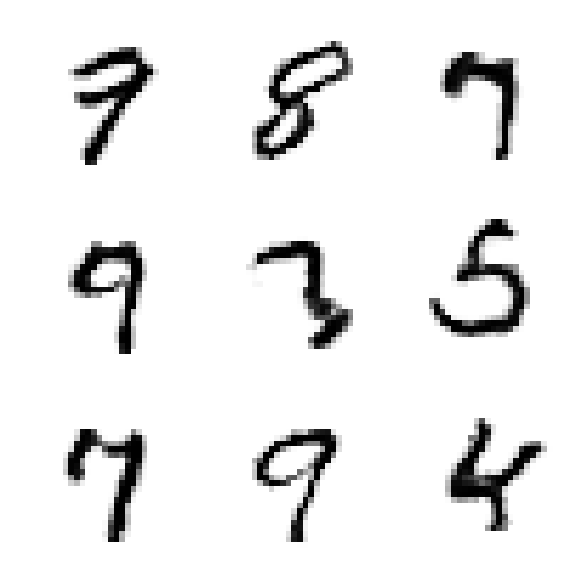 7 8 7
9 3 5
7 9 4